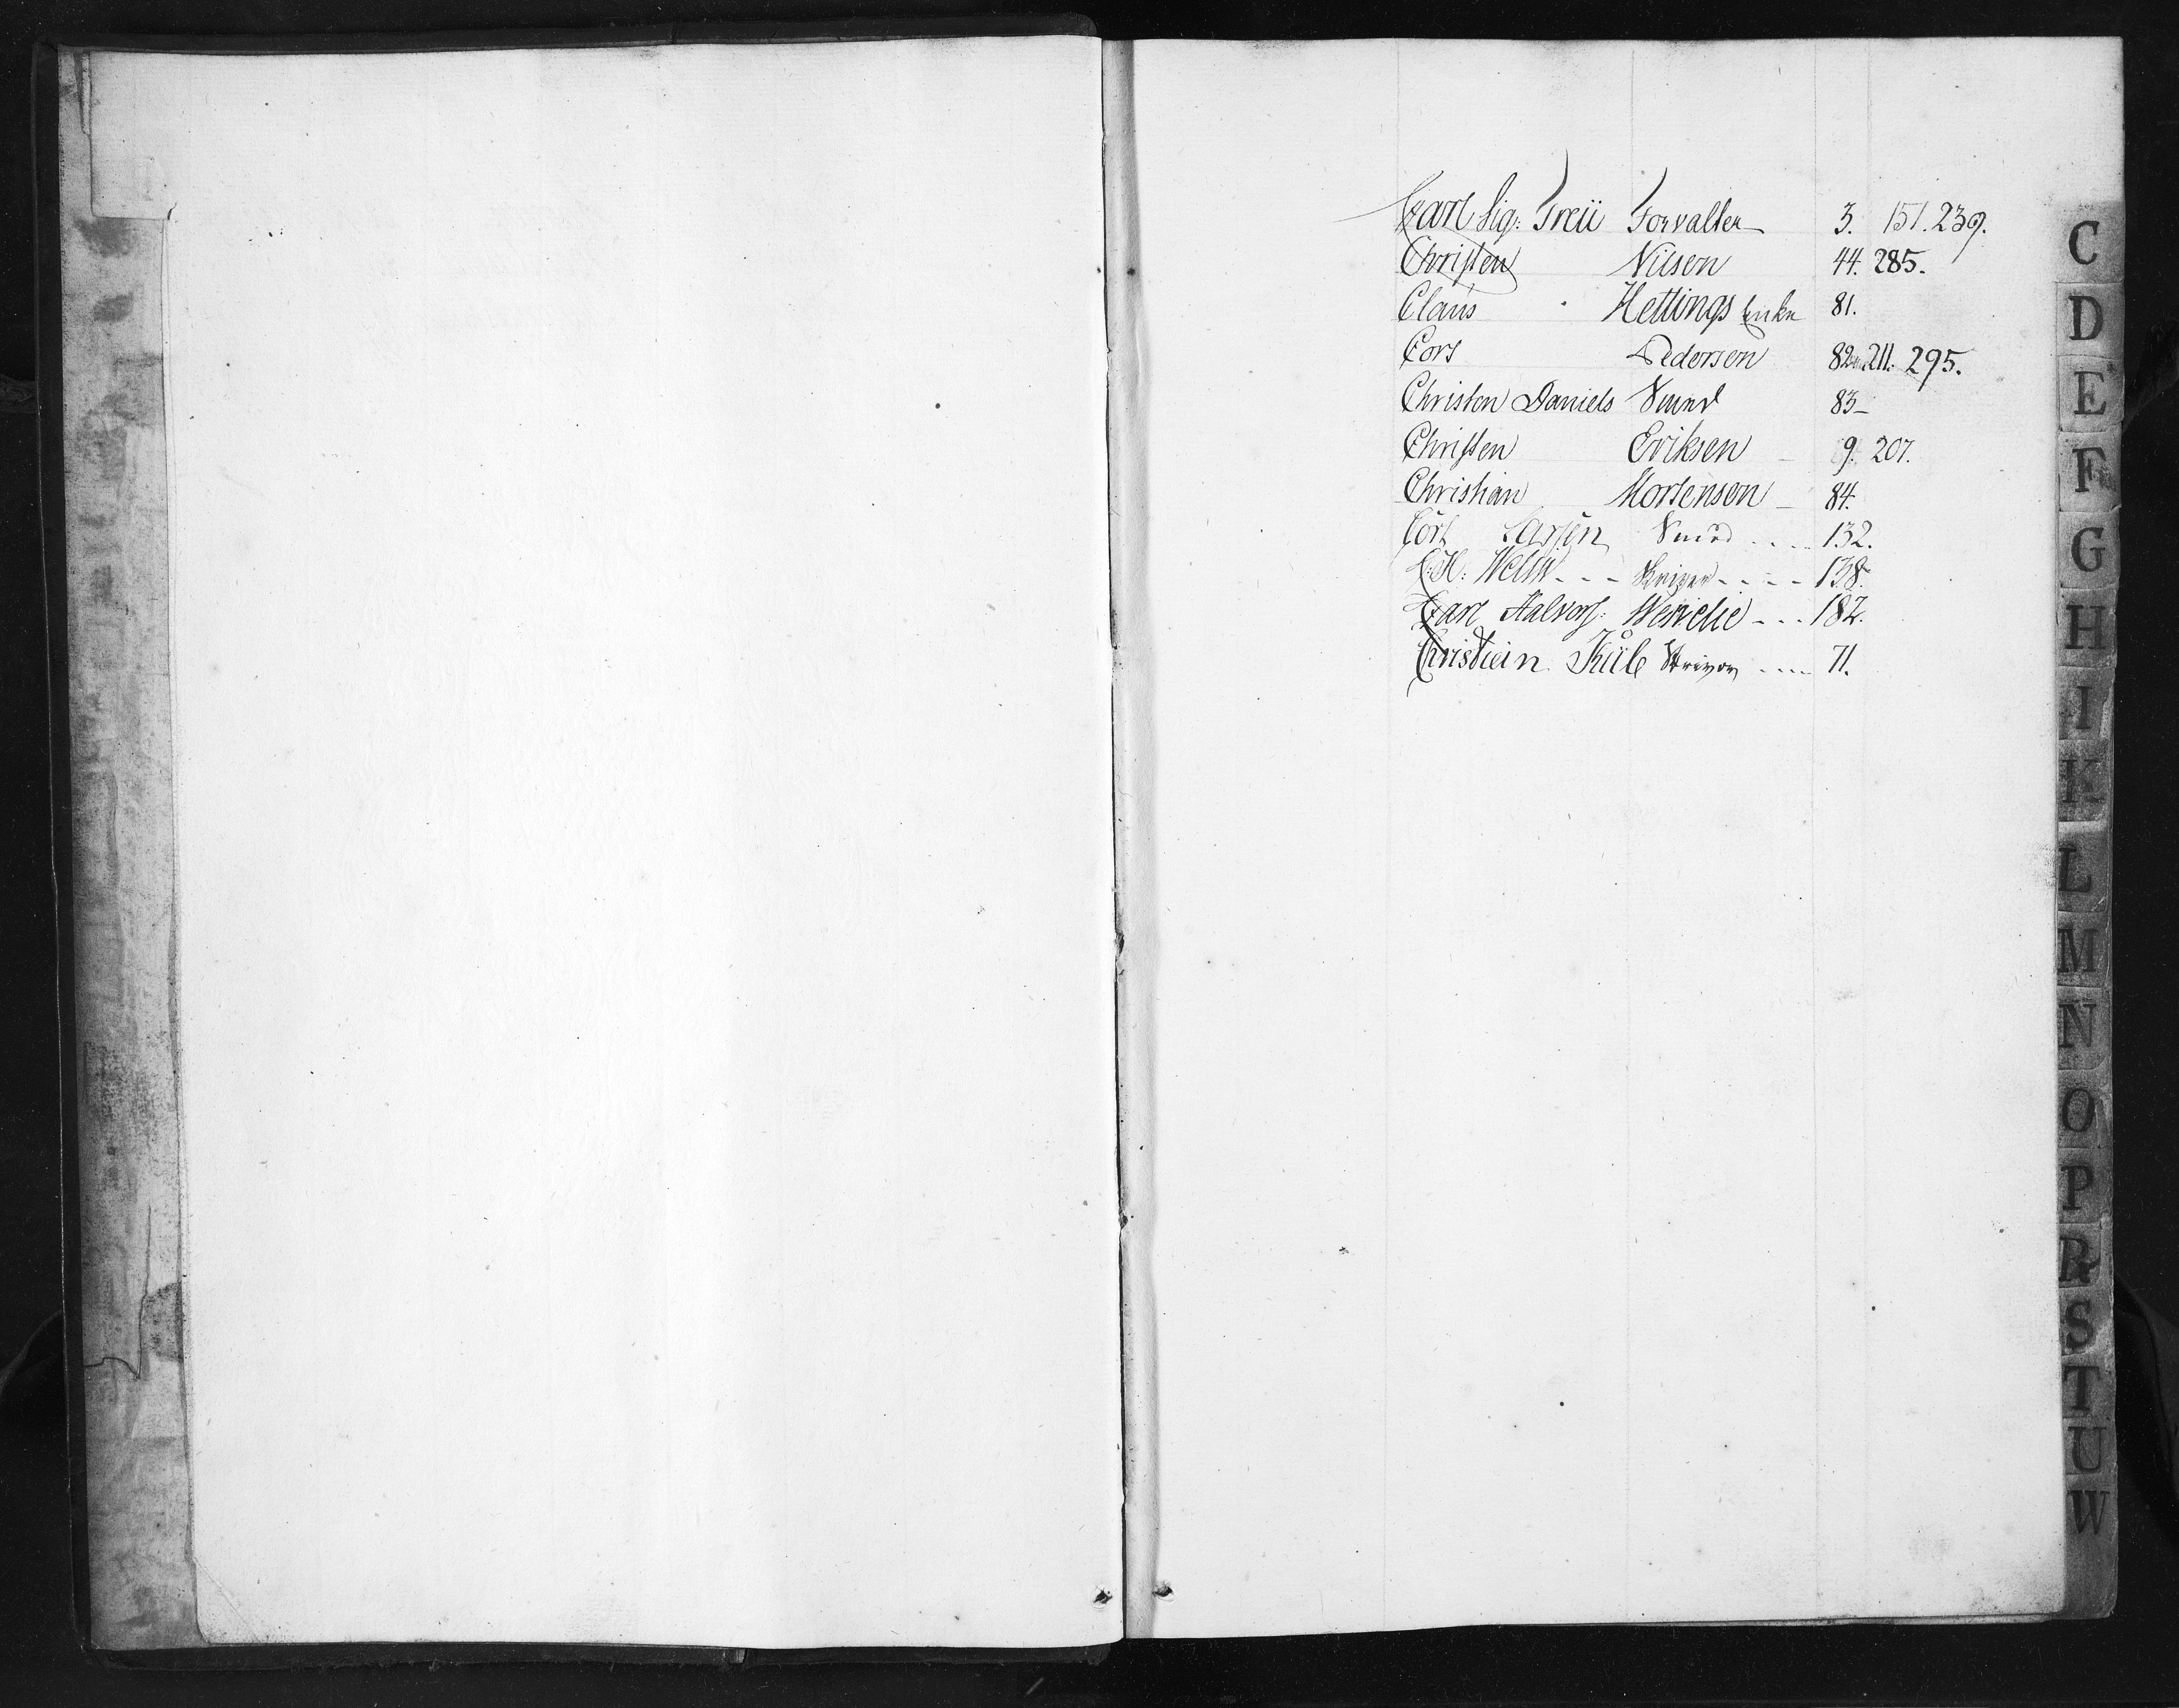 Carl Sig: Treü Forvalter 3. 151. 239.
Christen Nilsen 44. 285.
Claus Hettings Enke 81.
Cort Pedersen 82. 211. 295.
Christen Daniels Smed 83
Christen Eriksen 9. 207.
Christian Mortensen 84.
Cort Larsen Smed .... 132.
C: H: - - - Skriver - - - - 138.
Carl Halvors: - - - 182.
Christian Skriver .... 71.
C
D
E
F
G
H
I
K
L
M
N
O
P
R
S
T
U
W